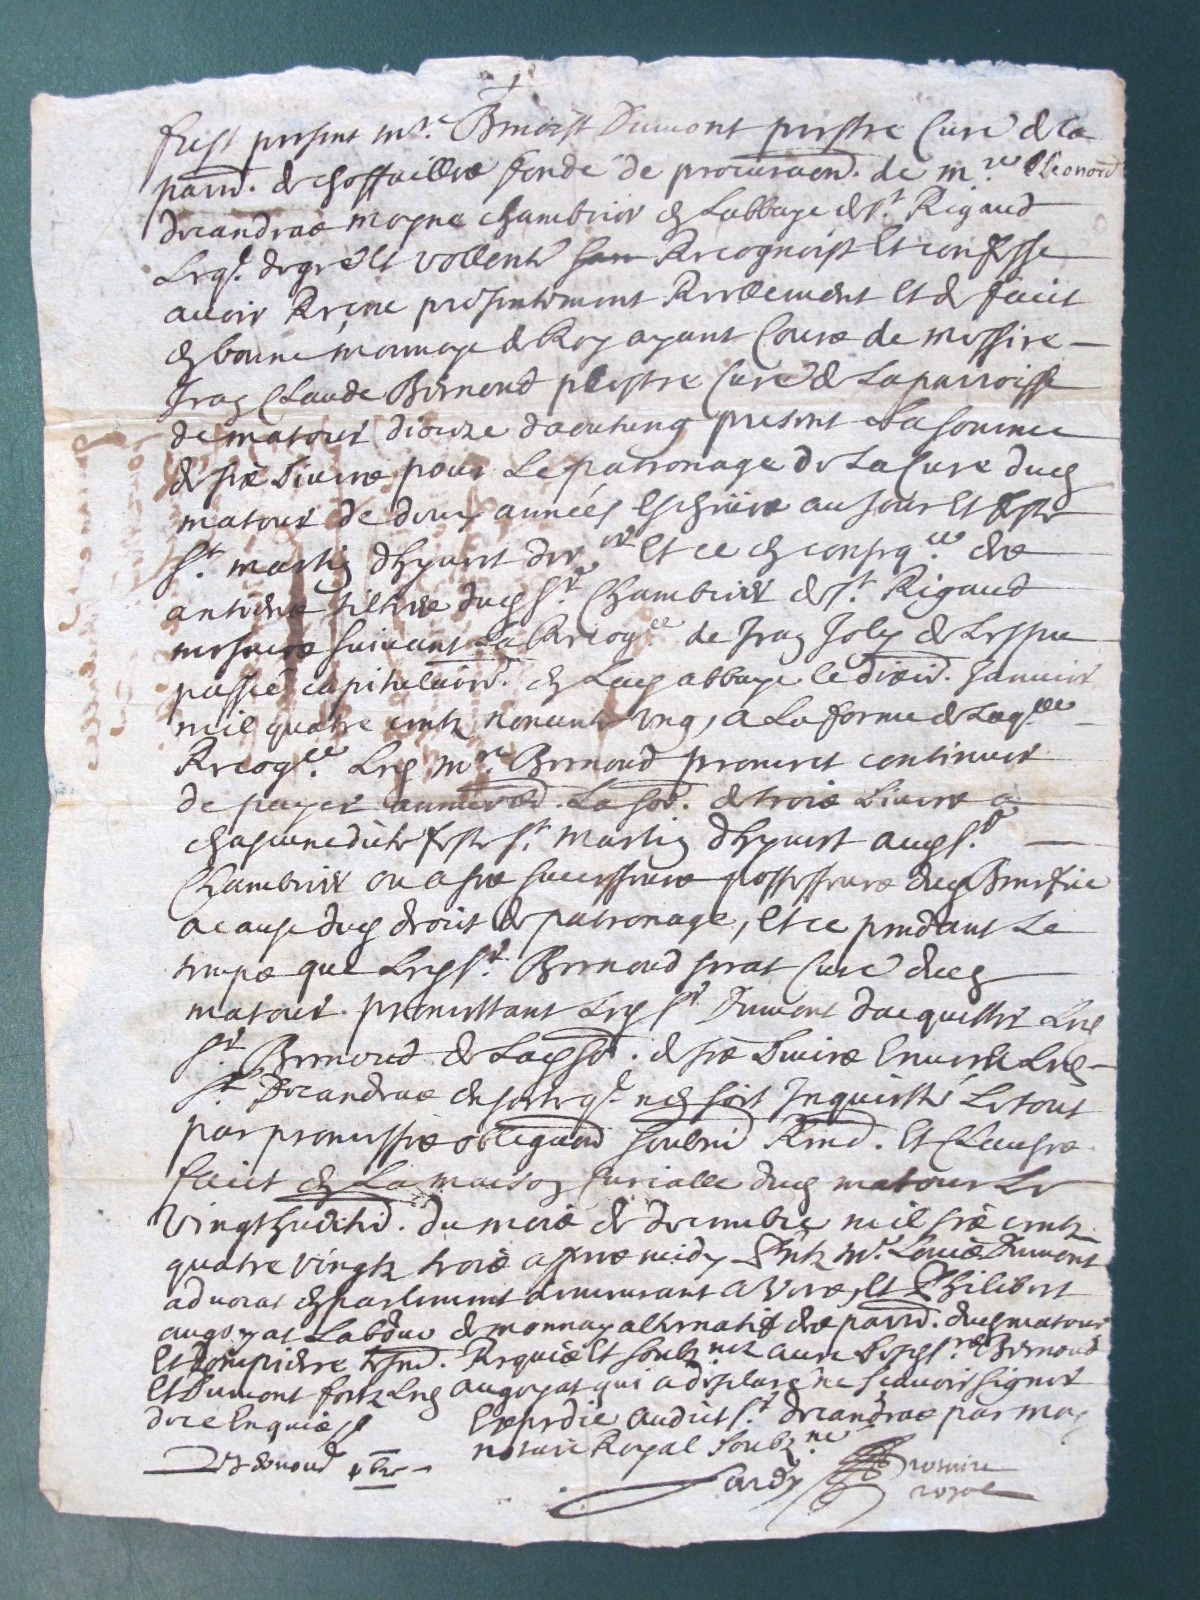 fust present mre Benoist Dumont prestre Curé de la
parr. de choffailles fondé de procuraon. de mre Leonord
decandras moyne chambrier de Labbaye de st Rigaud
Leql. de gré et vollenté Recognoist Et confesse
avoir Receu presentement Reellement Et de faict
en bonne monnoye de Roy ayant Cours de messire
Claude Bernond prestre Curé de La parroisse
de matour dioceze daoutung present La somme
de six Livres pour Le patronage de La Cure dud
matour de deux années Escheues au jour Et feste
st martin dhyvert der Et ce en conseqce des
antiens tiltres dud sr Chambrier de st Rigaud
mesmes suivant La Recogce de Joly de
passé capitulairt. en Lad abbaye le Janvier
mil quatre centz nonante ung, a La forme de Laqlle
Recogce. Led mre Bernond promet continuer
de payer annuelt. La so. de trois Livres a
chascune dicte feste st Martin dhyvert aud sr
Chambrier ou a ses successeurs possesseurs dud Benefice
a cause dud droit de patronage, Et ce pendant Le
temps que Led sr. Bernond serat Curé dud
matour. promettant Led sr Dumont dacquitter Led
sr Bernond de Lad so. de six Livres Envers Led
sr Decandras en sorte ql. nen soit Inquietté Le tout
par promesses obligaon soubmi Ren. Et Clauses
faict en La maison Curialle dud matour Le
vingt huictie. du mois de decembre mil six centz
quatre vingtz trois apres midy Pntz mr. Louis Dumont
advocat en parlement demeurant a Et Philibert
augoyat Labour de monnay alternatif des parr. dud matour
Et dompierre tesm. Requis Et soubznez avec Lesd srs Bernond
Et Dumont fors Led augoyat qui a desclaré ne scavoir signer
de ce Enquis
Expedié audict sr decandras par moy
notaire Royal soubzné
Bernond pbre
notaire
royal